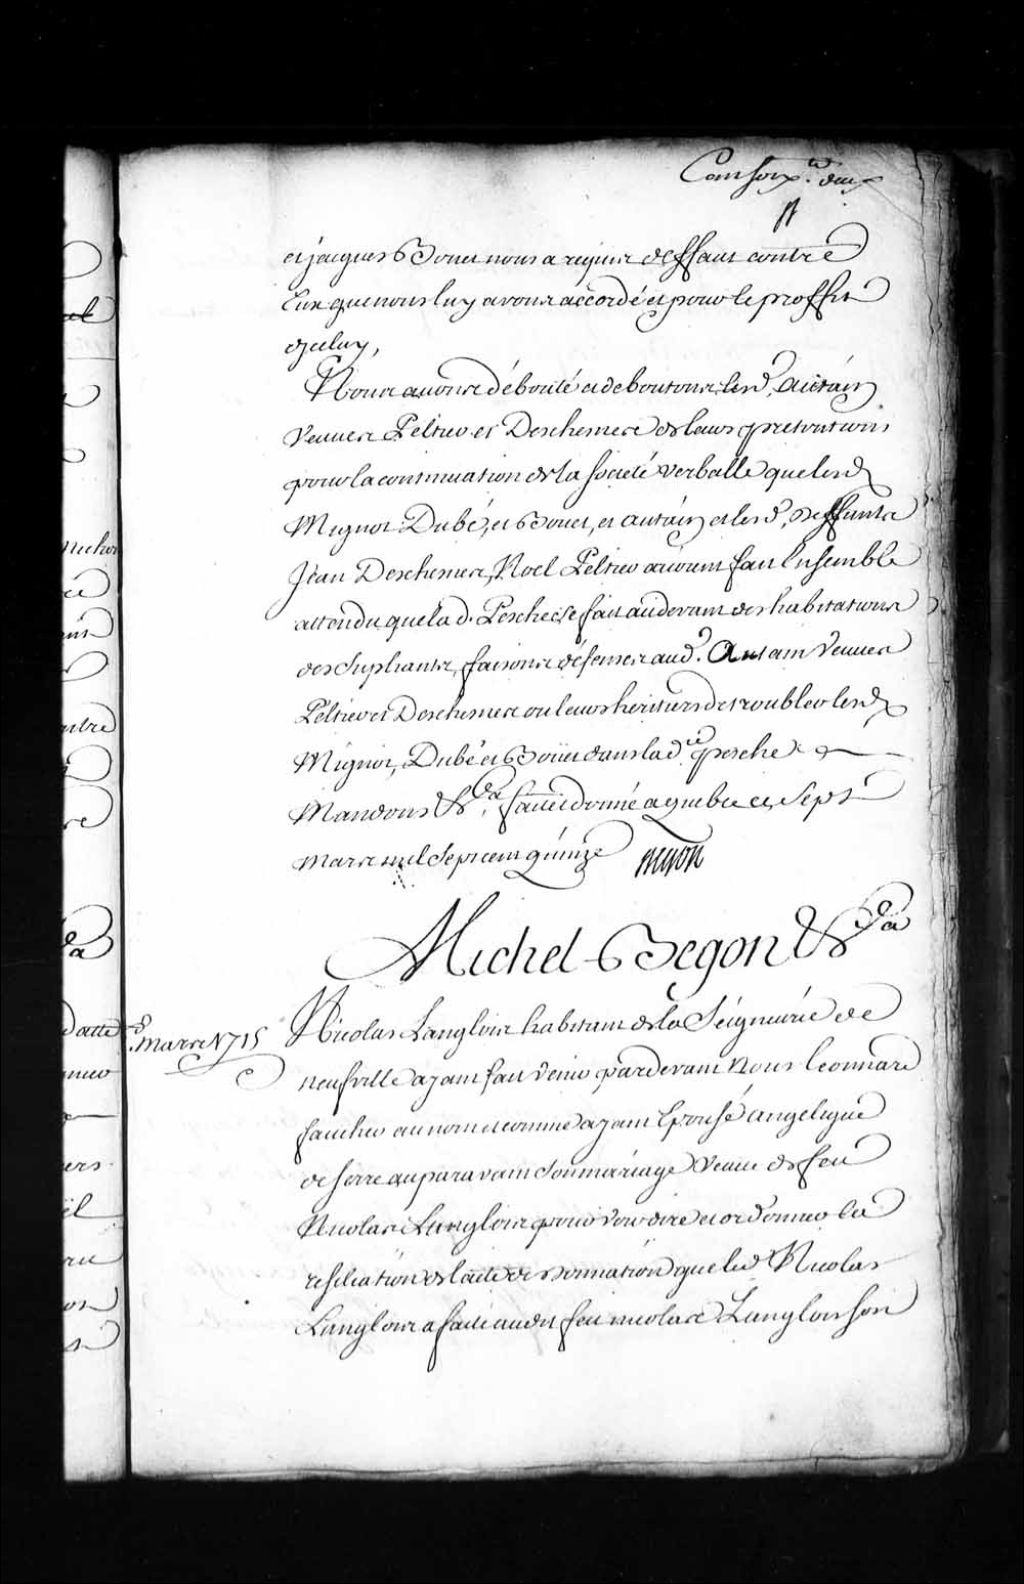 Cent soix.te deux
et jacques Bouet nous a requis deffaut contre
Eux que nous luy avons accordé et pour le proffit
d'iceluy,
Nous avons débouté et deboutons lesd. Autain
Veuves Peltier et Deschesnes de leurs pretentions
pour la continuation de la société verballe que lesd
Mignot Dubé, et Bouet, et autain et lesd, deffunts
Jean Deschesnes, Noel Peltier avoient fait Ensemble
attendu que lad. Pesche se fait audevant des habitations
des Supliants, faisons défenses aud. Autain Veuves
Peltier et Deschesnes ou leurs heritiers de troubler lesd
Mignot, Dubé et Boüet dans lad.te pesche
Mandons &.a fait et donné a quebec ce, Sept
mars mil Sept cent quinze Begon
Michel Begon &.a
8 Mars 1715
Nicolas Langlois habitant de la Seigneurie de
neufville ayant fait venir pardevant Nous leonnard
faucher au nom et comme ayant Epousé angelique
de serre auparavant son mariage Veuve de feu
Nicolas Langlois pour voir dire et ordonner la
resiliation de l'acte de donnation que led Nicolas
Langlois a faite audit feu nicolas Langlois son